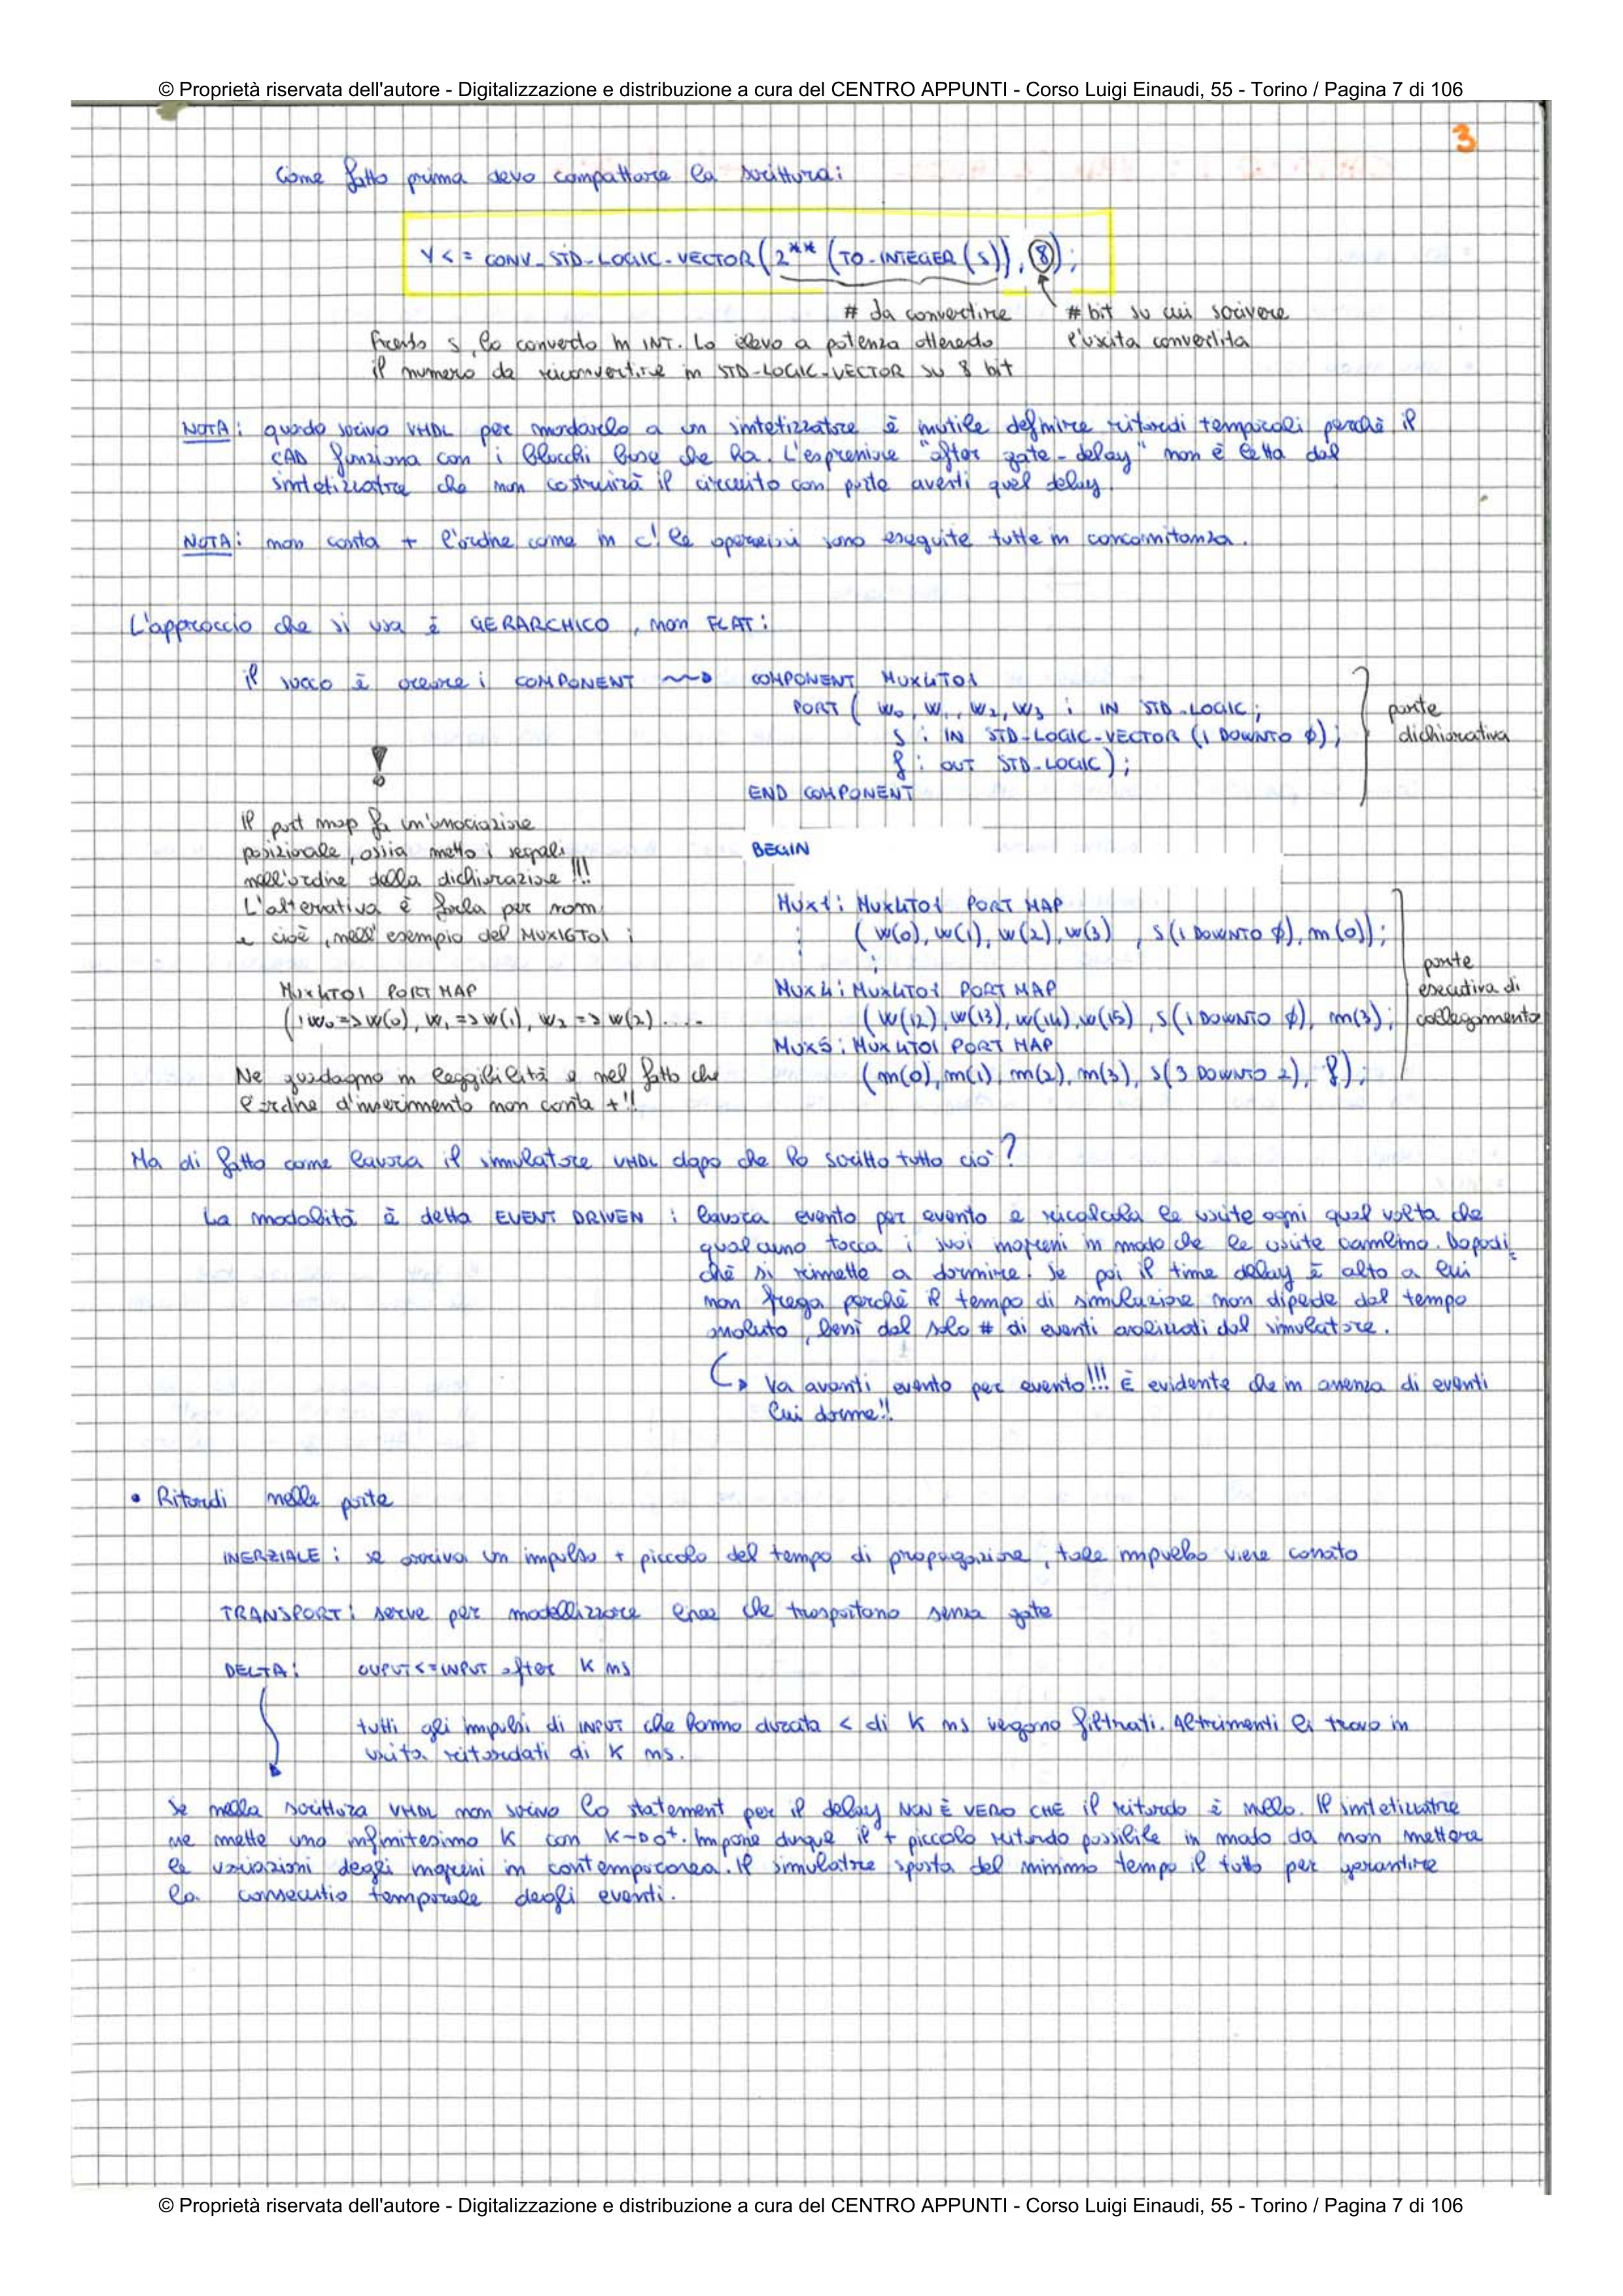 © Proprietà riservata dell'autore - Digitalizzazione e distribuzione a cura del CENTRO APPUNTI - Corso Luigi Einaudi, 55 - Torino / Pagina 7 di 106
3
Come fatto prima devo compattare la scrittura:
Y <= CONV_STD-LOGIC-VECTOR(2**(TO-INTEGER(S)), 8);
# da convertire
# bit su cui scrivere
l'uscita convertita
s, lo converto in INT. Lo elevo a potenza ottenendo
il numero da riconvertire in STD-LOGIC-VECTOR su 8 bit
NOTA: quando scrivo VHDL per mandarlo a un sintetizzatore è inutile definire ritardi temporali perchè il
CAD funziona con i blocchi base che ha. L'espressione "after gate-delay" non è letta dal
sintetizzatore che non costruirà il circuito con porte aventi quel delay.
NOTA: non conta + l'ordine come in C! le operazioni sono eseguite tutte in concomitanza.
L'approccio che si usa è GERARCHICO, non FLAT:
il succo è creare i COMPONENT
COMPONENT MUX4TO1
PORT ( W0, W1, W2, W3 : IN STD-LOGIC;
S : IN STD-LOGIC-VECTOR (1 DOWNTO 0);
f : OUT STD-LOGIC);
END COMPONENT
parte
dichiarativa
!
Il port map fa un'associazione
posizionale, ossia metto i segnali
nell'ordine della dichiarazione!!!
L'alternativa è farla per nomi
e cioè, nell'esempio del MUX16TO1:
MUX4TO1 PORT MAP
(W0=>W(0), W1=>W(1), W2=>W(2)....
Ne guadagno in leggibilità e nel fatto che
l'ordine d'inserimento non conta +!!
BEGIN
MUX1: MUX4TO1 PORT MAP
( W(0), W(1), W(2), W(3), S(1 DOWNTO 0), m(0));
MUX4: MUX4TO1 PORT MAP
(W(12), W(13), W(14), W(15), S(1 DOWNTO 0), m(3);
MUX5: MUX4TO1 PORT MAP
(m(0), m(1), m(2), m(3), S(3 DOWNTO 2), f);
parte
esecutiva di
collegamento
Ma di fatto come lavora il simulatore VHDL dopo che ho scritto tutto ciò?
La modalità è detta EVENT DRIVEN : lavora evento per evento e ricalcola le uscite ogni qual volta che
qualcuno tocca i suoi ingressi in modo che le uscite cambino. Dopodi
chè si rimette a dormire. Se poi il time delay è alto a lui
non frega perchè il tempo di simulazione non dipende dal tempo
assoluto, bensì dal solo # di eventi analizzati dal simulatore.
Va avanti evento per evento!!! È evidente che in assenza di eventi
lui dorme!!
• Ritardi nelle porte
INERZIALE: se arriva un impulso + piccolo del tempo di propagazione, tale impulso viene
TRANSPORT: serve per modellizzare linee che trasportano senza gate
DELTA: OUPUT<=INPUT after K ns
tutti gli impulsi di INPUT che hanno durata < di K ns vengono filtrati. Altrimenti li trovo in
uscita ritardati di K ns.
Se nella scrittura VHDL non scrivo lo statement per il delay NON È VERO CHE il ritardo è nullo. Il sintetizzatore
ne mette uno infinitesimo K con K→0+. Impone dunque il + piccolo ritardo possibile in modo da non mettere
le variazioni degli ingressi in contemporanea. Il simulatore sposta del minimo tempo il tutto per garantire
la consecutio temporale degli eventi.
© Proprietà riservata dell'autore - Digitalizzazione e distribuzione a cura del CENTRO APPUNTI - Corso Luigi Einaudi, 55 - Torino / Pagina 7 di 106